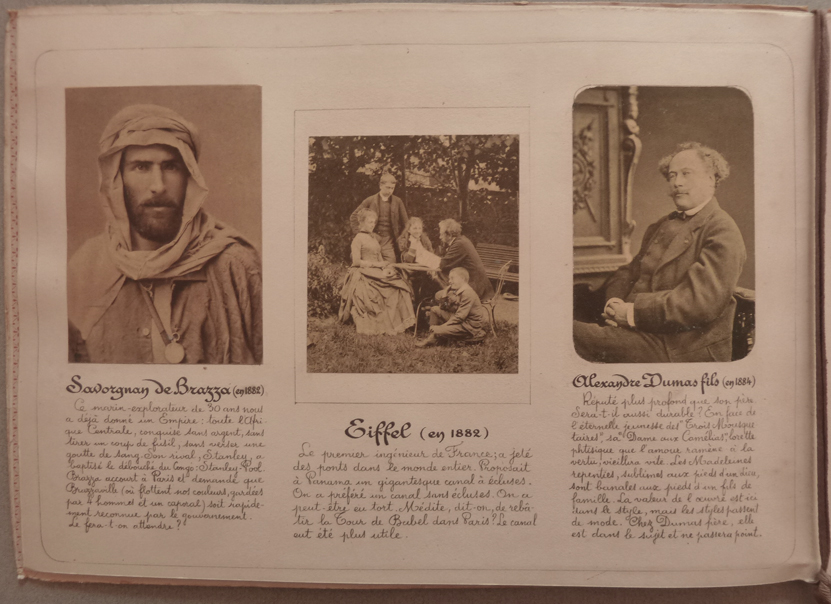 Savorgnan de Brazza (en 1882)
Ce marin-explorateur de 30 ans nous
a déjà donné un Empire : toute l'Afri-
que Centrale, conquise sans argent, sans
tirer un coup de fusil, sans verser une
goutte de sang. Son rival, Stanley, a
baptisé le débouché du Congo : Stanley-Pool.
Brazza accourt à Paris et demande que
Brazzaville (où flottent nos couleurs, gardées
par 4 hommes et un caporal) soit rapide-
ment reconnue par le gouvernement.
Le fera-t-on attendre ?
Eiffel (en 1882)
Le premier ingénieur de France ; a jeté
des ponts dans le monde entier. Proposait
à Panama un gigantesque canal à écluses.
On a préféré un canal sans écluses. On a
peut-être eu tort. Médite, dit-on, de rebâ-
tir la Tour de Babel dans Paris ! Le canal
eut été plus utile.
Alexandre Dumas fils (en 1884)
Réputé plus profond que son père.
Sera-t-il aussi durable ? En face de
l'éternelle jeunesse des "Trois Mousque-
taires", sa "Dame aux Camélias", lorette
phtisique que l'amour ramène à la
vertu, vieillira vite. Les Madeleines
repenties, sublimes aux pieds d'un Dieu,
sont banales aux pieds d'un fils de
famille. La valeur de l'œuvre est ici
dans le style, mais les styles passent
de mode. Chez Dumas père, elle
est dans le sujet et ne passera point.